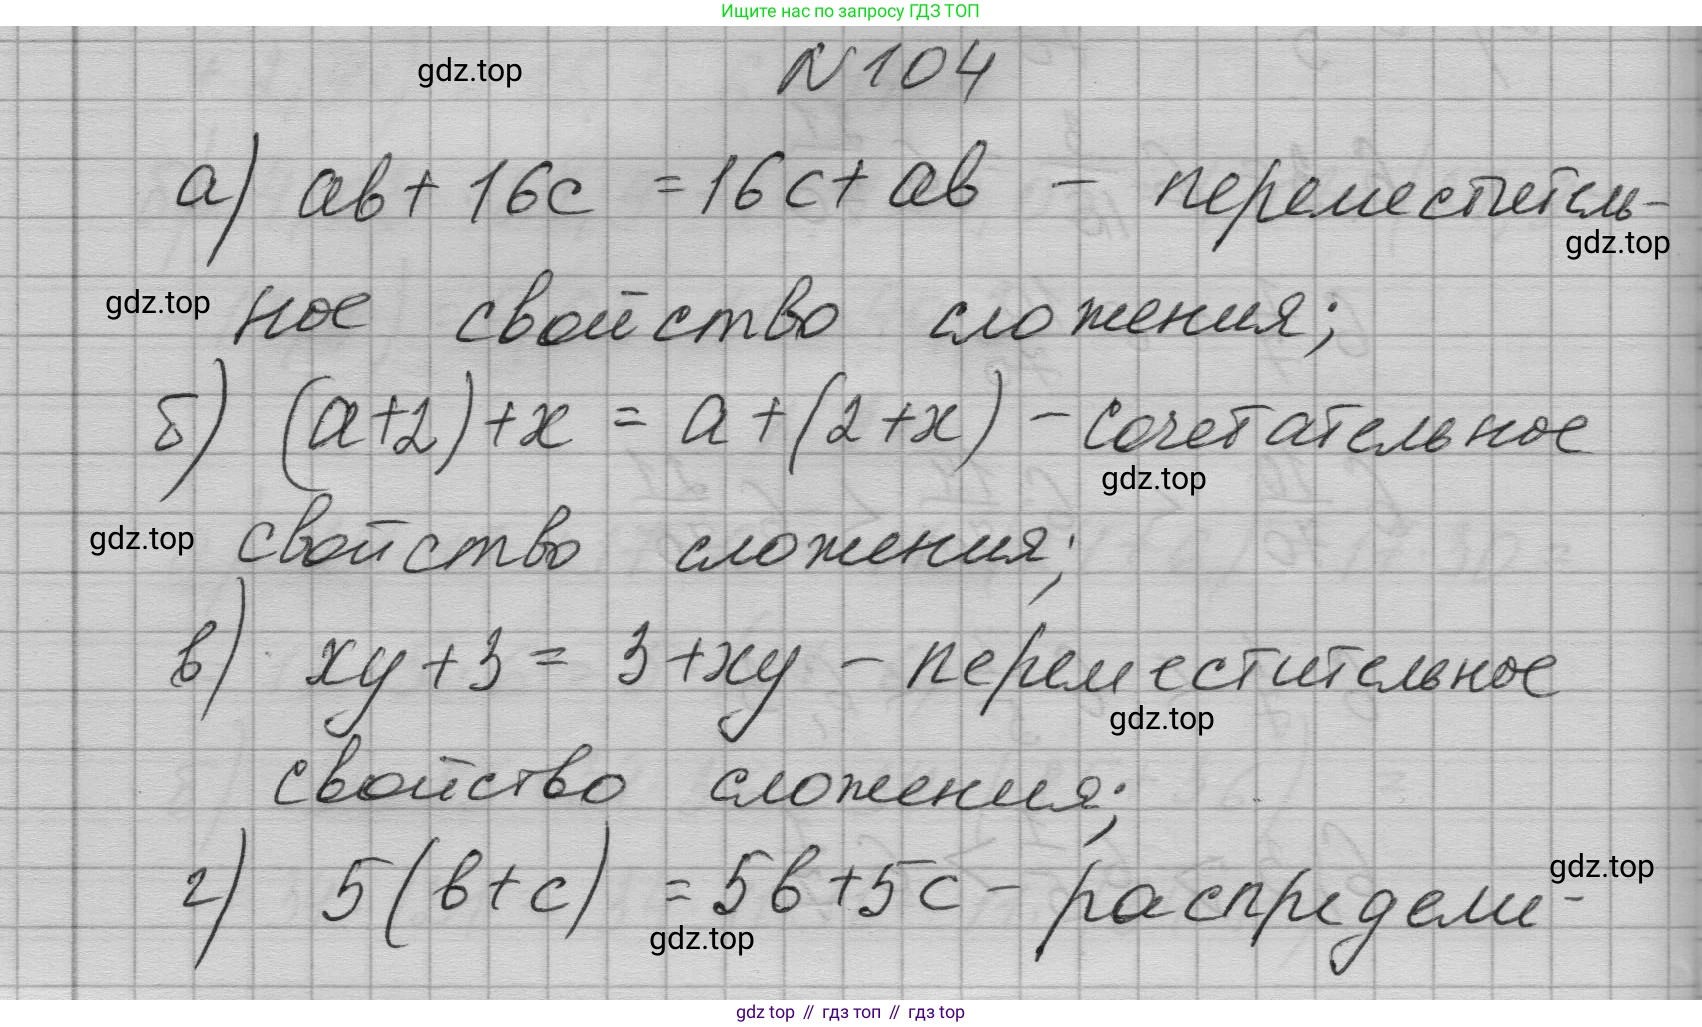 Ищите нас по запросу ГДЗ ТОП
gdz.top
№104
а) ab + 16c = 16c + ab - переместитель-
gdz.top
gdz.top
ное свойство сложения;
б) (a+2)+x = a+(2+x) - сочетательное
gdz.top
gdz.top
свойство сложения;
в) xy + 3 = 3 + xy - переместительное
gdz.top
свойство сложения;
gdz.top
г) 5(b+c) = 5b + 5c - распредели-
gdz.top
gdz.top // гдз топ // гдз top